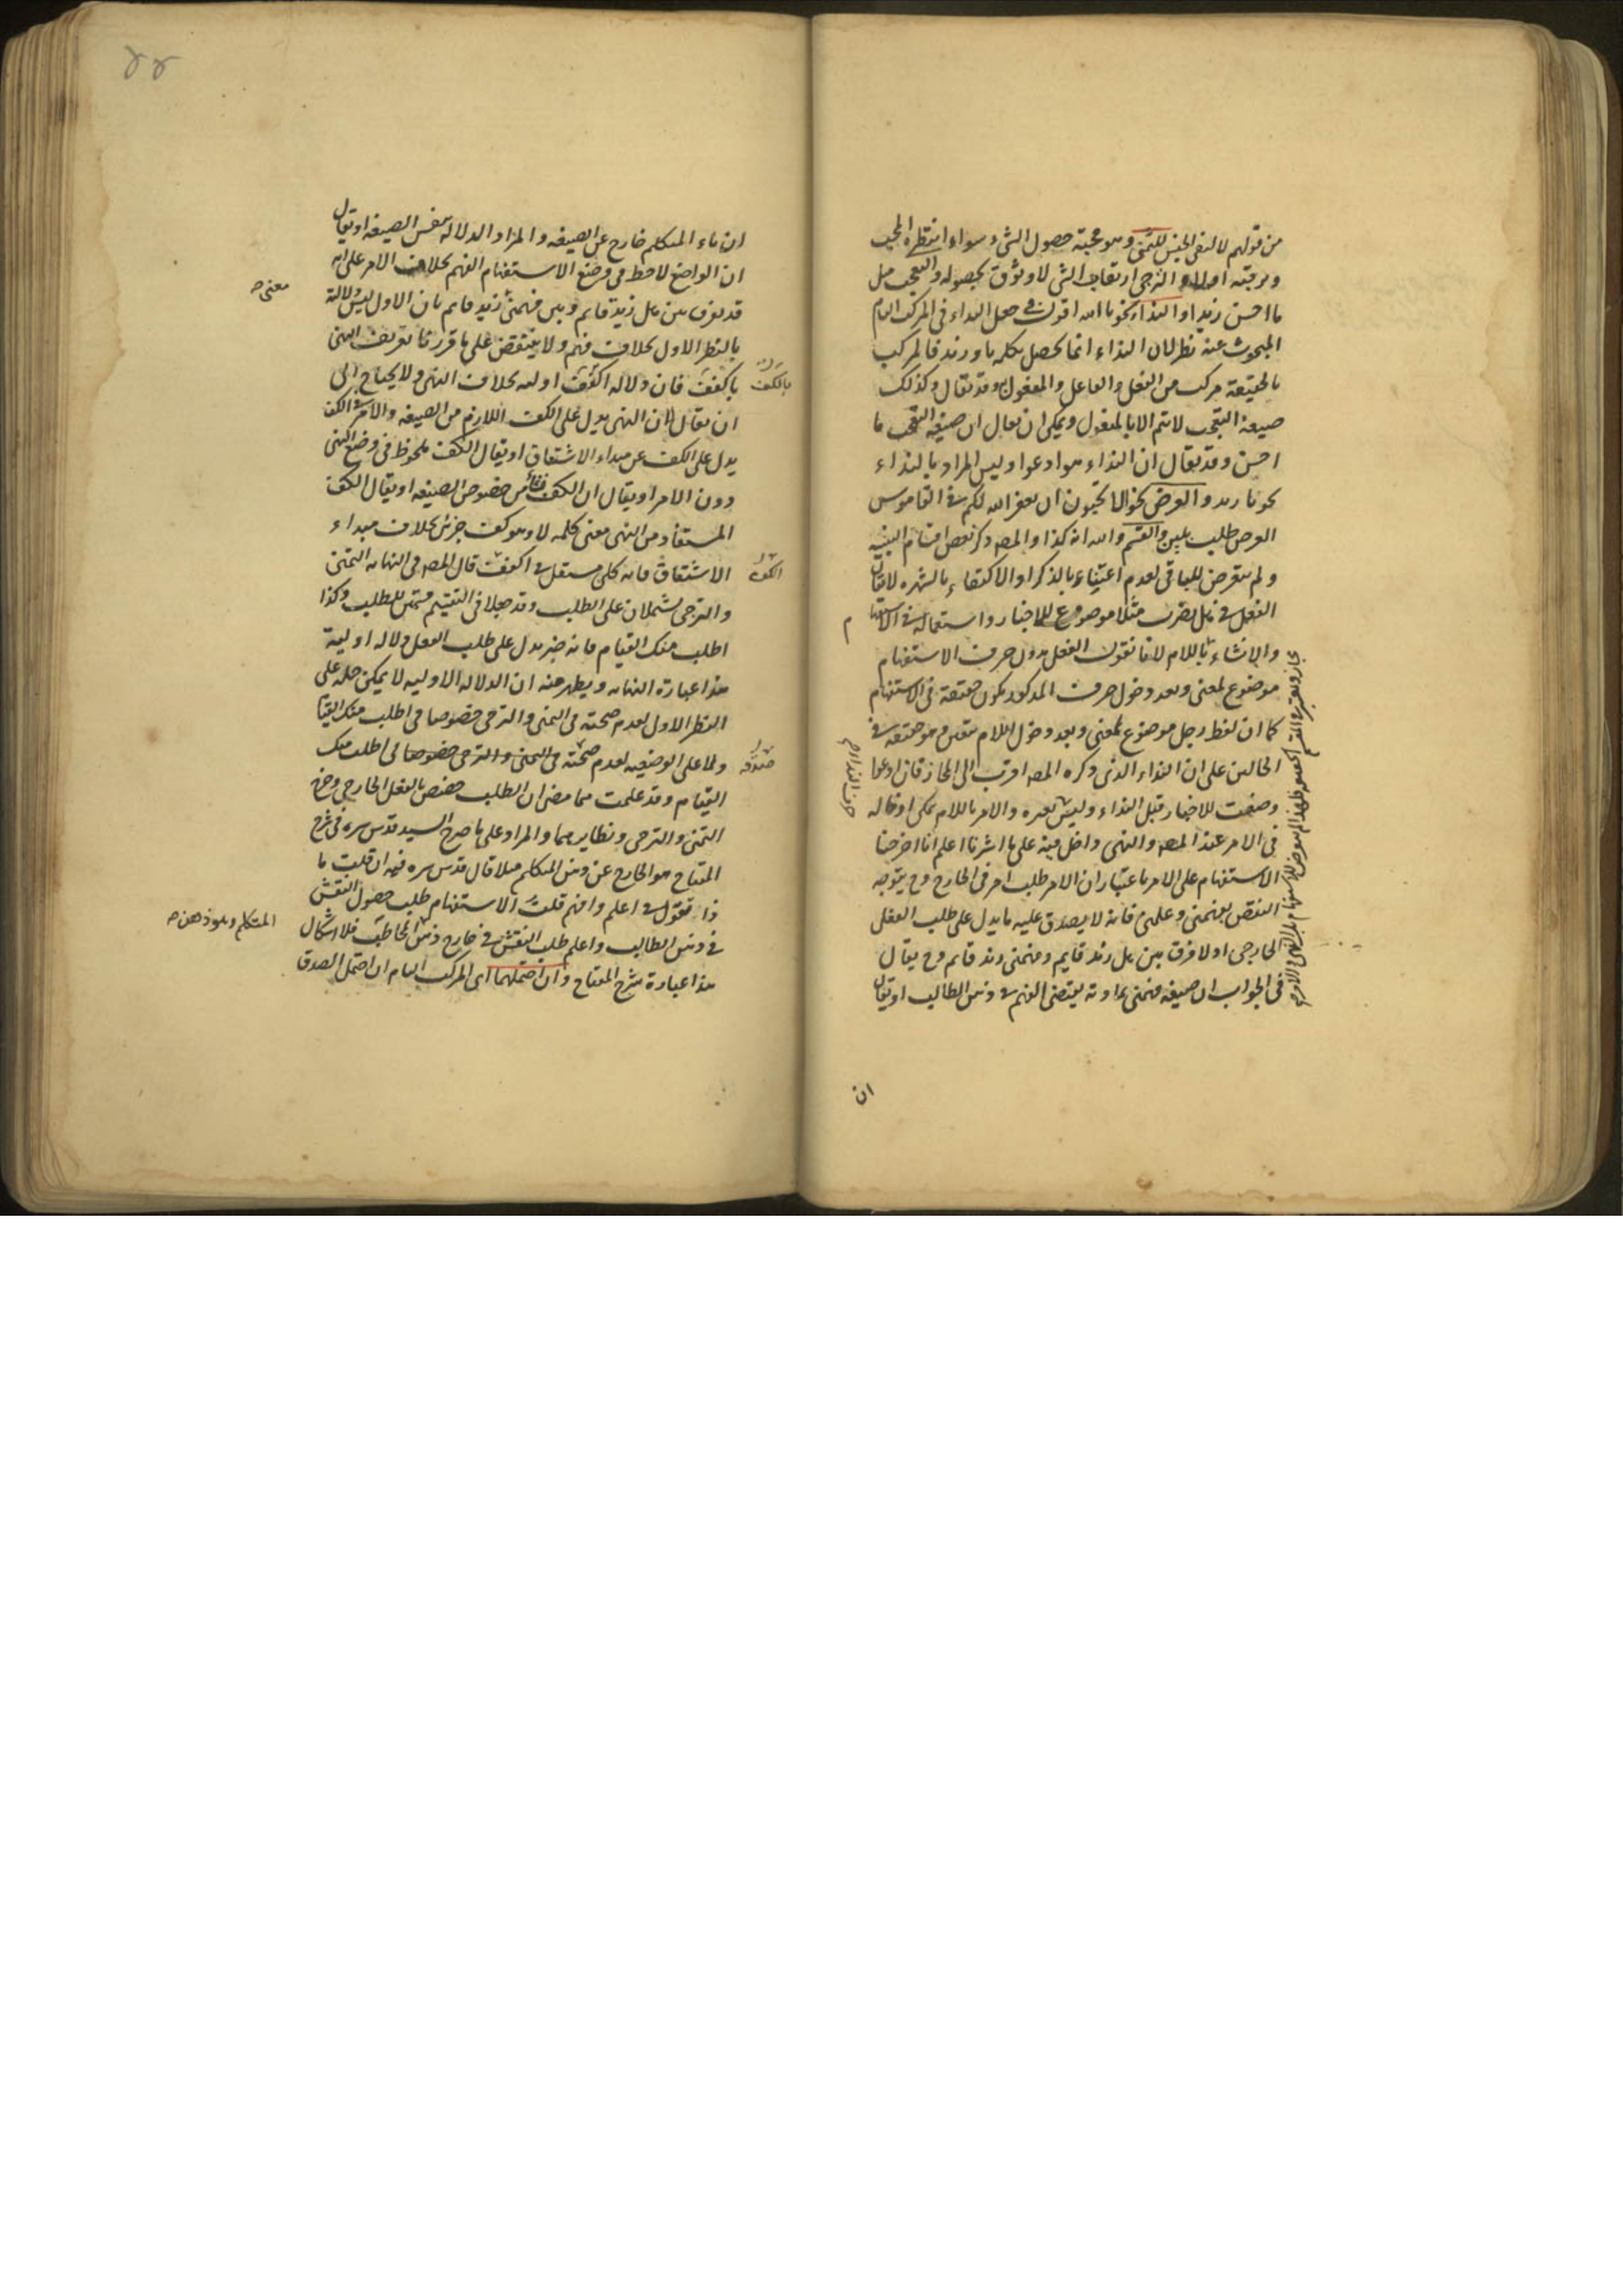 من قولهم لا لنفي الجنس للتمني وهو محبة حصول الشيء سواء انتظره المحب
او لا والترجي ارتقاب الشي لا وثوق بحصوله والتعجب مثل
ما احسن زيدا والنداء نحو يا الله اقول في جعل النداء في المركب التام
المبحوث عنه نظر لان النداء انما يحصل بكلمه يا وزيد فالمركب
بالحقيقة مركب من الفعل والفاعل والمفعول وقد يقال وكذلك
صيغة التعجب لا يتم الا بالمفعول ويمكن ان يقال ان صيغة التعجب ما
احسن وقد يقال ان النداء هو ادعوا وليس المراد بالنداء
نحو يا زيد والعرض نحو الا تحبون ان يغفر الله لكم في القاموس
العرض طلب بلين والقسم والله انه كذا والمصه ذكر بعض اقسام التنبيه
ولم يتعرض للباقي لعدم اعتناء بالذكر او الاكتفاء بالشهره لا يقال
الفعل في هل يضرب مثلا موضوع للاخبار واستعماله في الاستفهام
والانشاء باللام لانا نقول الفعل بدون حرف الاستفهام
موضوع لمعنى وبعد دخول حرف المذكور يكون حقيقة في الاستفهام
كما ان لفظ رجل موضوع لمعنى وبعد دخول اللام متعين وهو حقيقه في
الحالين على ان النداء الذي ذكره المصه اقرب الى المجاز فان ادعوا
وضعت للاخبار قبل النداء وليس بعده والامر باللام يمكن ادخاله
في الامر عند المصه والنهي داخل فيه على ما اشرنا اعلم انا اخرجنا
الاستفهام على الامر باعتبار ان الامر طلب امر في الخارج وح يتوجه
النقض بفهمني وعلمني فانه لا يصدق عليه ما يدل على طلب الفعل
الخارجي اولا فرق بين هل زيد قايم وفهمني زيد قايم وح يقال
في الجواب ان صيغه فهمني بمادته يقتضي الفهم في ذهن الطالب او يقال
ان
حرف النداء صح
ان ياء المتكلم خارج عن الصيغه والمراد الدلاله بنفس الصيغه او يقال
ان الواضع لاحظ في وضع الاستفهام الفهم بخلاف الامر على انه
قد يفرق بين هل زيد قايم وبين فهمني زيد قايم بان الاول ليس دلالة
بالنظر الاول بخلاف فهم ولا ينتقض على ما قررنا تعريف النهي
باكفف فان دلاله اكفف اوليه بخلاف النهي ولا يحتاج الى
ان يقال بان النهي يدل على الكف اللازم من الصيغه والامر في الكف
يدل على الكف عن مبداء الاشتقاق او يقال الكف ملحوظ في وضع النهي
دون الامر او يقال ان الكف فيه من خصوص الصيغه او يقال الكف
المستفاد من النهي معنى كلمه لا وهو كف جزئي بخلاف مبداء
الاشتقاق فانه كلي مستقل في اكفف قال المصه في النهايه التمني
والترجي يشملان على الطلب وقد جعلا في التقسيم قسمين للطلب وكذا
اطلب منك القيام فانه خبر يدل على طلب الفعل دلاله اوليه
هذا عبارة النهايه ويظهر منه ان الدلاله الاوليه لا يمكن حمله على
النظر الاول لعدم صحته في التمني والترجي خصوصا في اطلب منك القيا
ولا على الوضعيه لعدم صحته في التمني والترجي خصوصا في اطلب منك
القيام وقد علمت مما مضى ان الطلب خصص بالفعل الخارجي وخرج
التمني والترجي ونظايرهما والمراد على ما صرح السيد قدس سره في شرح
المفتاح هو الخارج عن ذهن المتكلم مثلا قال قدس سره فيه ان قلت ما
ذا تقول في اعلم وافهم قلت الاستفهام طلب حصول النقش
في ذهن الطالب واعلم طلب النقش في خارج ذهن المخاطب فلا اشكال
هذا عبارة شرح المفتاح وان احتملهما اي المركب التام ان احتمل الصدق
معنى
بالكف
اكفف
صدقه
المتكلم وهو ذهن